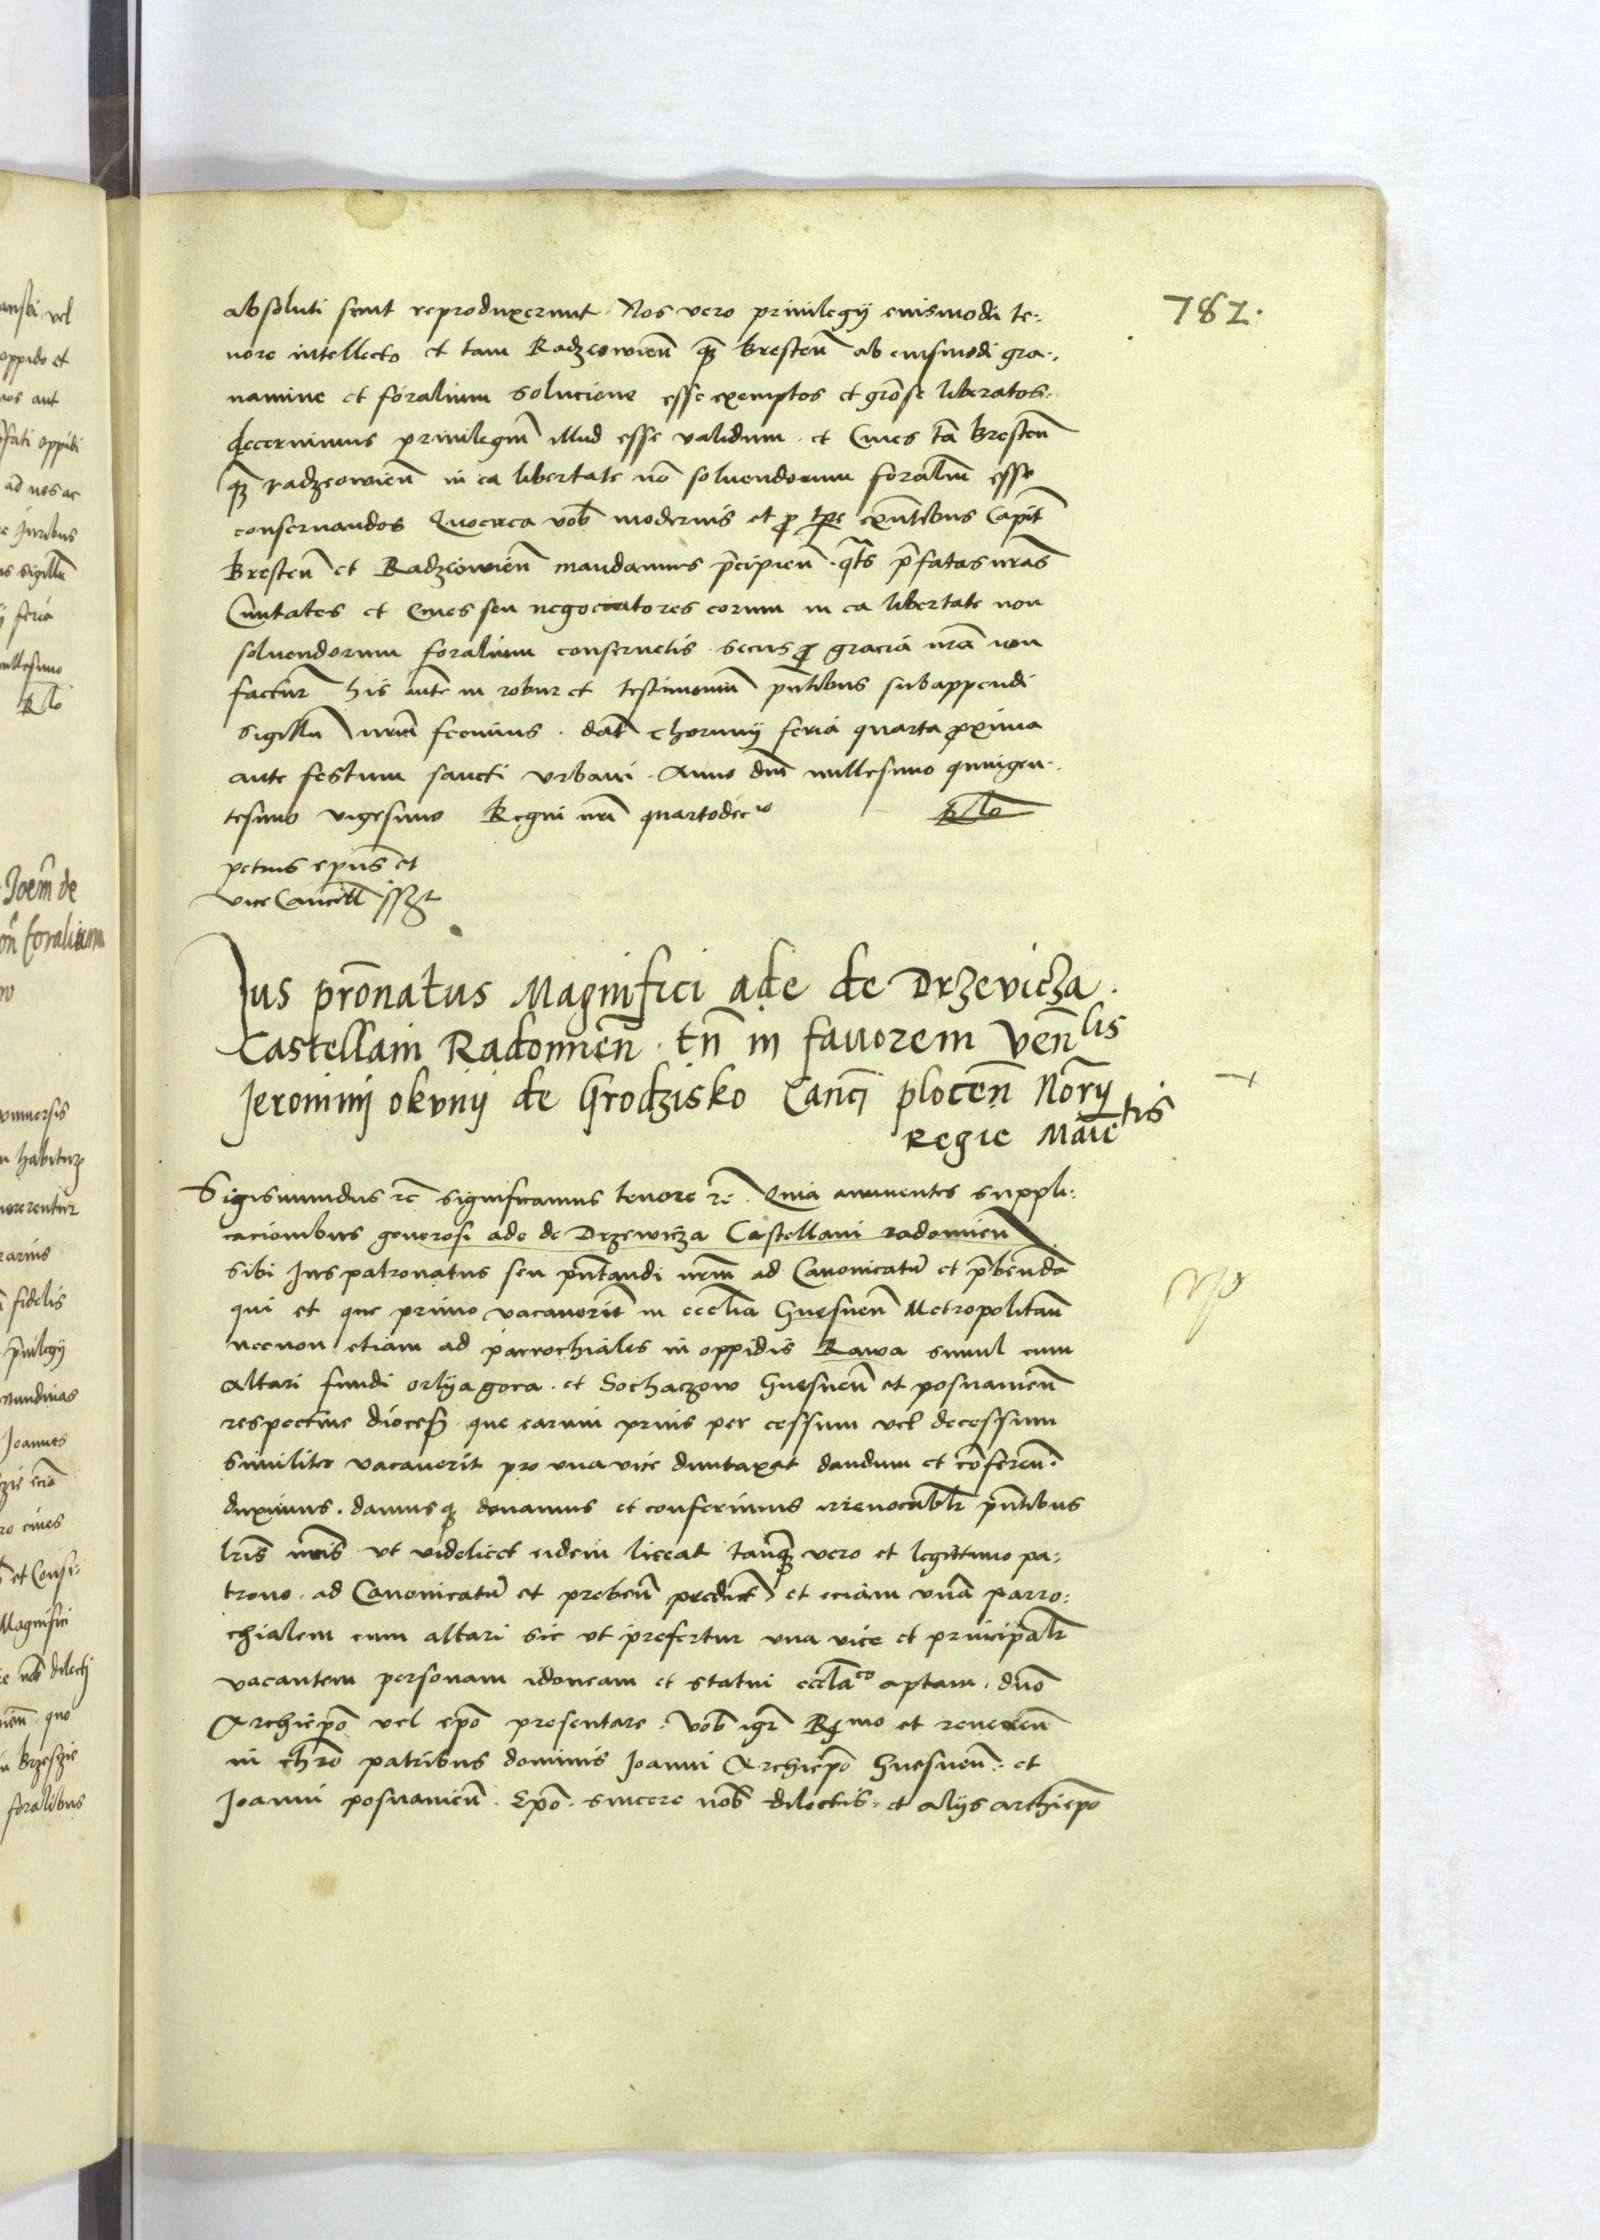 782.
absoluti sunt reproduxerunt. Nos vero privilegy eiusmodi te:
nore intellecto et tam Radzeowien̄ qz̄ Bresten̄ ab eiusmodi gra:,
uamine et foralium solucione esse exemptos et grōse liberatos.
decernimus privilegiū illud esse validum. et Ciues tā Bresten̄
qz̄ radzeowien̄ in ea libertate nō soluendorum foraliū esse
conseruandos Quocirca vob̄ modernis et p̱ tp̄re exn̄tibus Capit̄
Bresten̄ et Radzeowien̄ mandamus p̄cipien̄. qt̄s p̄fatas nr̄as
Ciuitates et Ciues seu negociatores eorum in ea libertate non
soluendorum foralium conseruetis. secus p̱ gracia nr̄a non
factur̄ his ante in robur et testimoniū pn̄tibus subappendi
Sigillū nr̄m fecimus. dat̄ Thoruny feria quarta pxima
ante festum sancti Vrbani. Anno dn̄i millesimo quingen:,
tesimo vigesimo Regni nr̄i quartodecᵒ Rlō
petrus ep̄us et
vice Cancell̄ sszt
Jus prōnatus Magnifici ade de Drzevicza.
Castellani Radomien̄. tn̄ in fauorem Ven̄lis
Jeronimi okvnij de Grodzisko Canc̄i plocen̄ Nor̄y
Regie Maiētis
Sigismundus rc̄ significamus tenore rē. Quia annuentes suppli:
cacionibus generosi ade de Drzewicza Castellani radomien̄
sibi Jus patronatus seu pn̄tandi nr̄m ad Canonicatū et p̄bendā
qui et que primo vacauerit in eccl̄ia Gnesnen̄ Metropolitan̄
necnon etiam ad parrochiales in oppidis Rawa simul cum
altari fundi orlya gora. et Sochaczow Gnesnen̄ et posnanien̄
respectiue dioces̄. que earum prius per cessum vel decessum
similiter vacauerit pro vna vice duntaxat dandum et cōferen̄.
duximus. damusqz donamus et conferimus irreuocabl̄r pn̄tibus
lr̄is nr̄is vt videlicet eidem liceat tanqz̄ vero et legittimo pa:
trono. ad Canonicatū et preben̄ predict̄ et eciam vnā parro:
chialem cum altari sic vt prefertur vna vice et principal̄r
vacantem personam idoneam et statui eccl̄acᵒ aptam. dn̄o
Archiep̄o vel ep̄o presentare. Vob̄ igr̄ Rͫmo et reueren̄
in chr̄o patribus dominis Joanni Archiep̄o Gnesnen̄. et
Joanni posnanien̄. Ep̄o. sincere nob̄ dilectis. et alijs archiep̄o